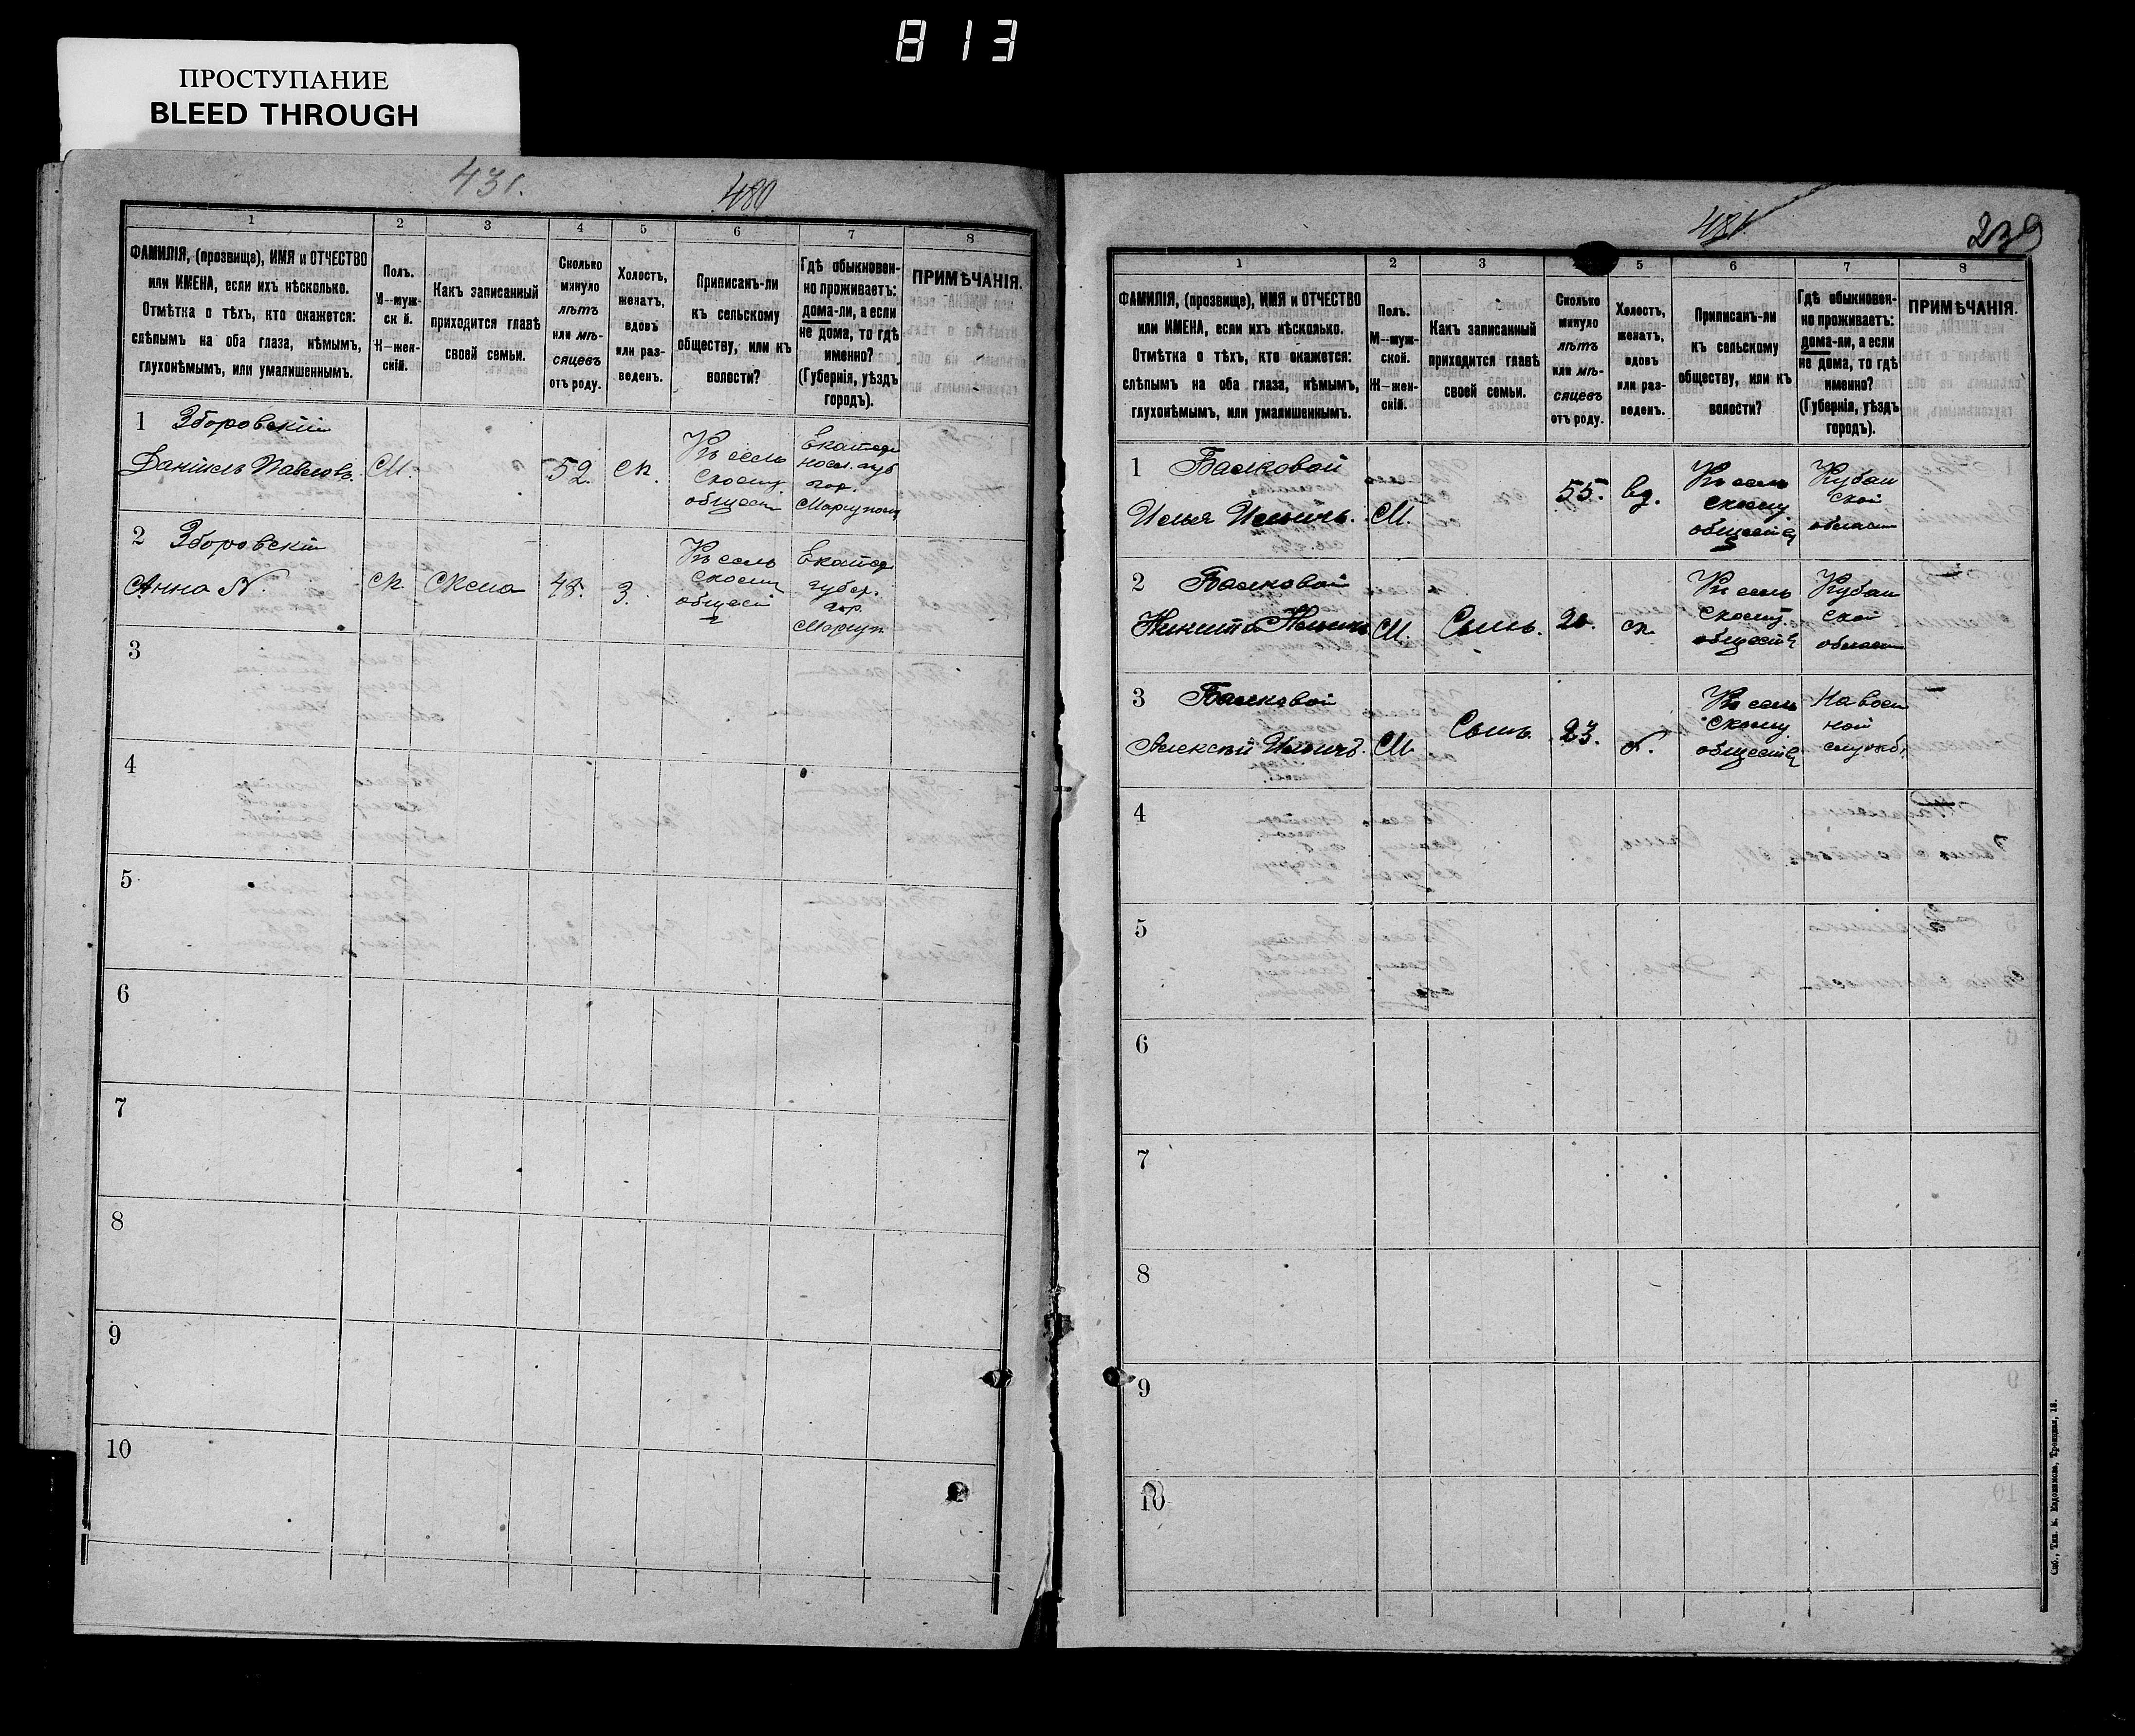 813
ПРОСТУПАНИЕ
BLEED THROUGH
431.
480
1 2 3 4 5 6 7 8
ФАМИЛІЯ, (прозвище), ИМЯ и ОТЧЕСТВО
или ИМЕНА, если ихъ нѣсколько.
Отмѣтка о тѣхъ, кто окажется:
слѣпымъ на оба глаза, нѣмымъ,
глухонѣмымъ, или умалишеннымъ.
Полъ.
М--муж-
ск й.
Ж--жен-
скій.
Какъ записанный
приходится главѣ
своей семьи.
Сколько
минуло
лѣтъ
или мѣ-
сяцевъ
отъ роду.
Холостъ,
женатъ,
вдовъ
или раз-
веденъ.
Приписанъ-ли
къ сельскому
обществу, или къ
волости?
Гдѣ обыкновен-
но проживаетъ:
дома-ли, а если
не дома, то гдѣ
именно?
(Губернія, уѣздъ
городъ).
ПРИМѢЧАНІЯ.
1 Зборовскій
Даніилъ Павловъ.
М.
52.
ж.
Къ сель
скому
общест
Екатер
носл. губ
гор.
Мариуполь
2 Зборовскій
Анна N.
Ж
Жена
З.
Къ сель
скому
общест
Екатер
губер.
гор.
Мариуп.
3
4
5
6
7
8
9
10
481
239
1 2 3 5 6 7 8
ФАМИЛІЯ, (прозвище), ИМЯ и ОТЧЕСТВО
или ИМЕНА, если ихъ нѣсколько.
Отмѣтка о тѣхъ, кто окажется:
слѣпымъ на оба глаза, нѣмымъ,
глухонѣмымъ, или умалишеннымъ.
Полъ.
М--муж-
ской.
Ж--жен-
скій.
Какъ записанный
приходится главѣ
своей семьи.
Сколько
минуло
лѣтъ
или мѣ-
сяцевъ
отъ роду.
Холостъ,
женатъ,
вдовъ
или раз-
веденъ.
Приписанъ-ли
къ сельскому
обществу, или къ
волости?
Гдѣ обыкновен-
но проживаетъ:
дома-ли, а если
не дома, то гдѣ
именно?
(Губернія, уѣздъ
городъ).
ПРИМѢЧАНІЯ.
1 Балковой
Илья Ильичъ.
М.
55.
вд.
Къ сель
скому
обществу
Кубан
ской
област
2 Балковой
Никита Ильичъ
М.
Сынъ.
20.
ж
Къ сель
скому
обществ
Кубан
ской
област
3 Балковой
Алексѣй Ильичъ.
М
Сынъ
23.
Къ сель
скому
обществу
На воен
ной
служб.
4
5
6
7
8
9
10
Спб., Тип. К. Евдокимова, Троицкая, 18.